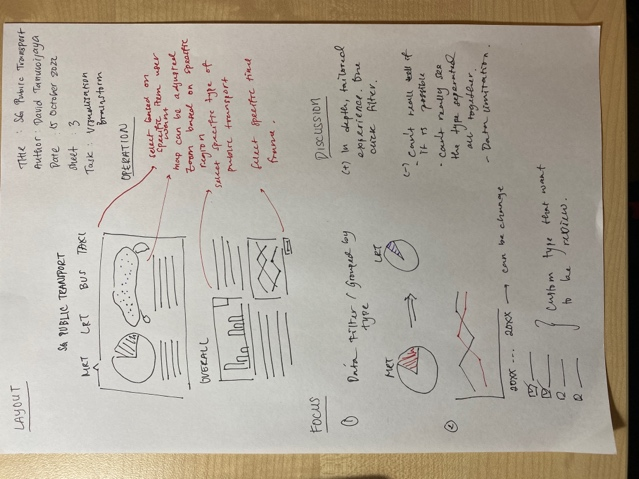 LAYOUT
SG PUBLIC TRANSPORT
MRT LRT BUS TAXI
OVERALL
Title : SG Public Transport
Author : David Tanuwijaya
Date 15 October 2022
Sheet 3
Task : Visualization
Brainstorm
OPERATION
select based on
specific item user
want
map can be adjusted
zoom based on specific
region
select specific type of
public transport
select specific time
frame.
FOCUS
① Data Filter / grouped by
type
MRT
LRT
②
20XX ... 20XX → can be change
custom type that want
to be review.
DISCUSSION
(+) In depth, tailored
experience. One
click filter.
(-) Can't really tell if
- it is possible
- Can't really see
the type separated
all together.
- Data limitation.